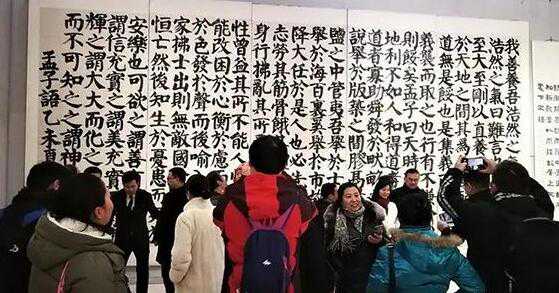 我善養吾浩然之
浩然之氣曰難言
至大至剛以直養
於天地之間其為
道無是餒也是集
義襲而取之也行有不
則餒矣孟子曰天時
地利不如人和得道
道者寡助舜發於畎
說舉於版築之間膠鬲
鹽之中管夷吾舉於士
舉於海百里奚舉於市
降大任於是人也必先
志勞其筋骨餓其
身行拂亂其所
性曾益其所不能人
能改困於心衡於慮
於色發於聲而後喻
家拂士出則無敵國
恒亡然後知生於憂患
安樂也可欲之謂善
謂信充實之謂美充實
輝之謂大大而化之
而不可知之之謂神
孟子語乙未夏